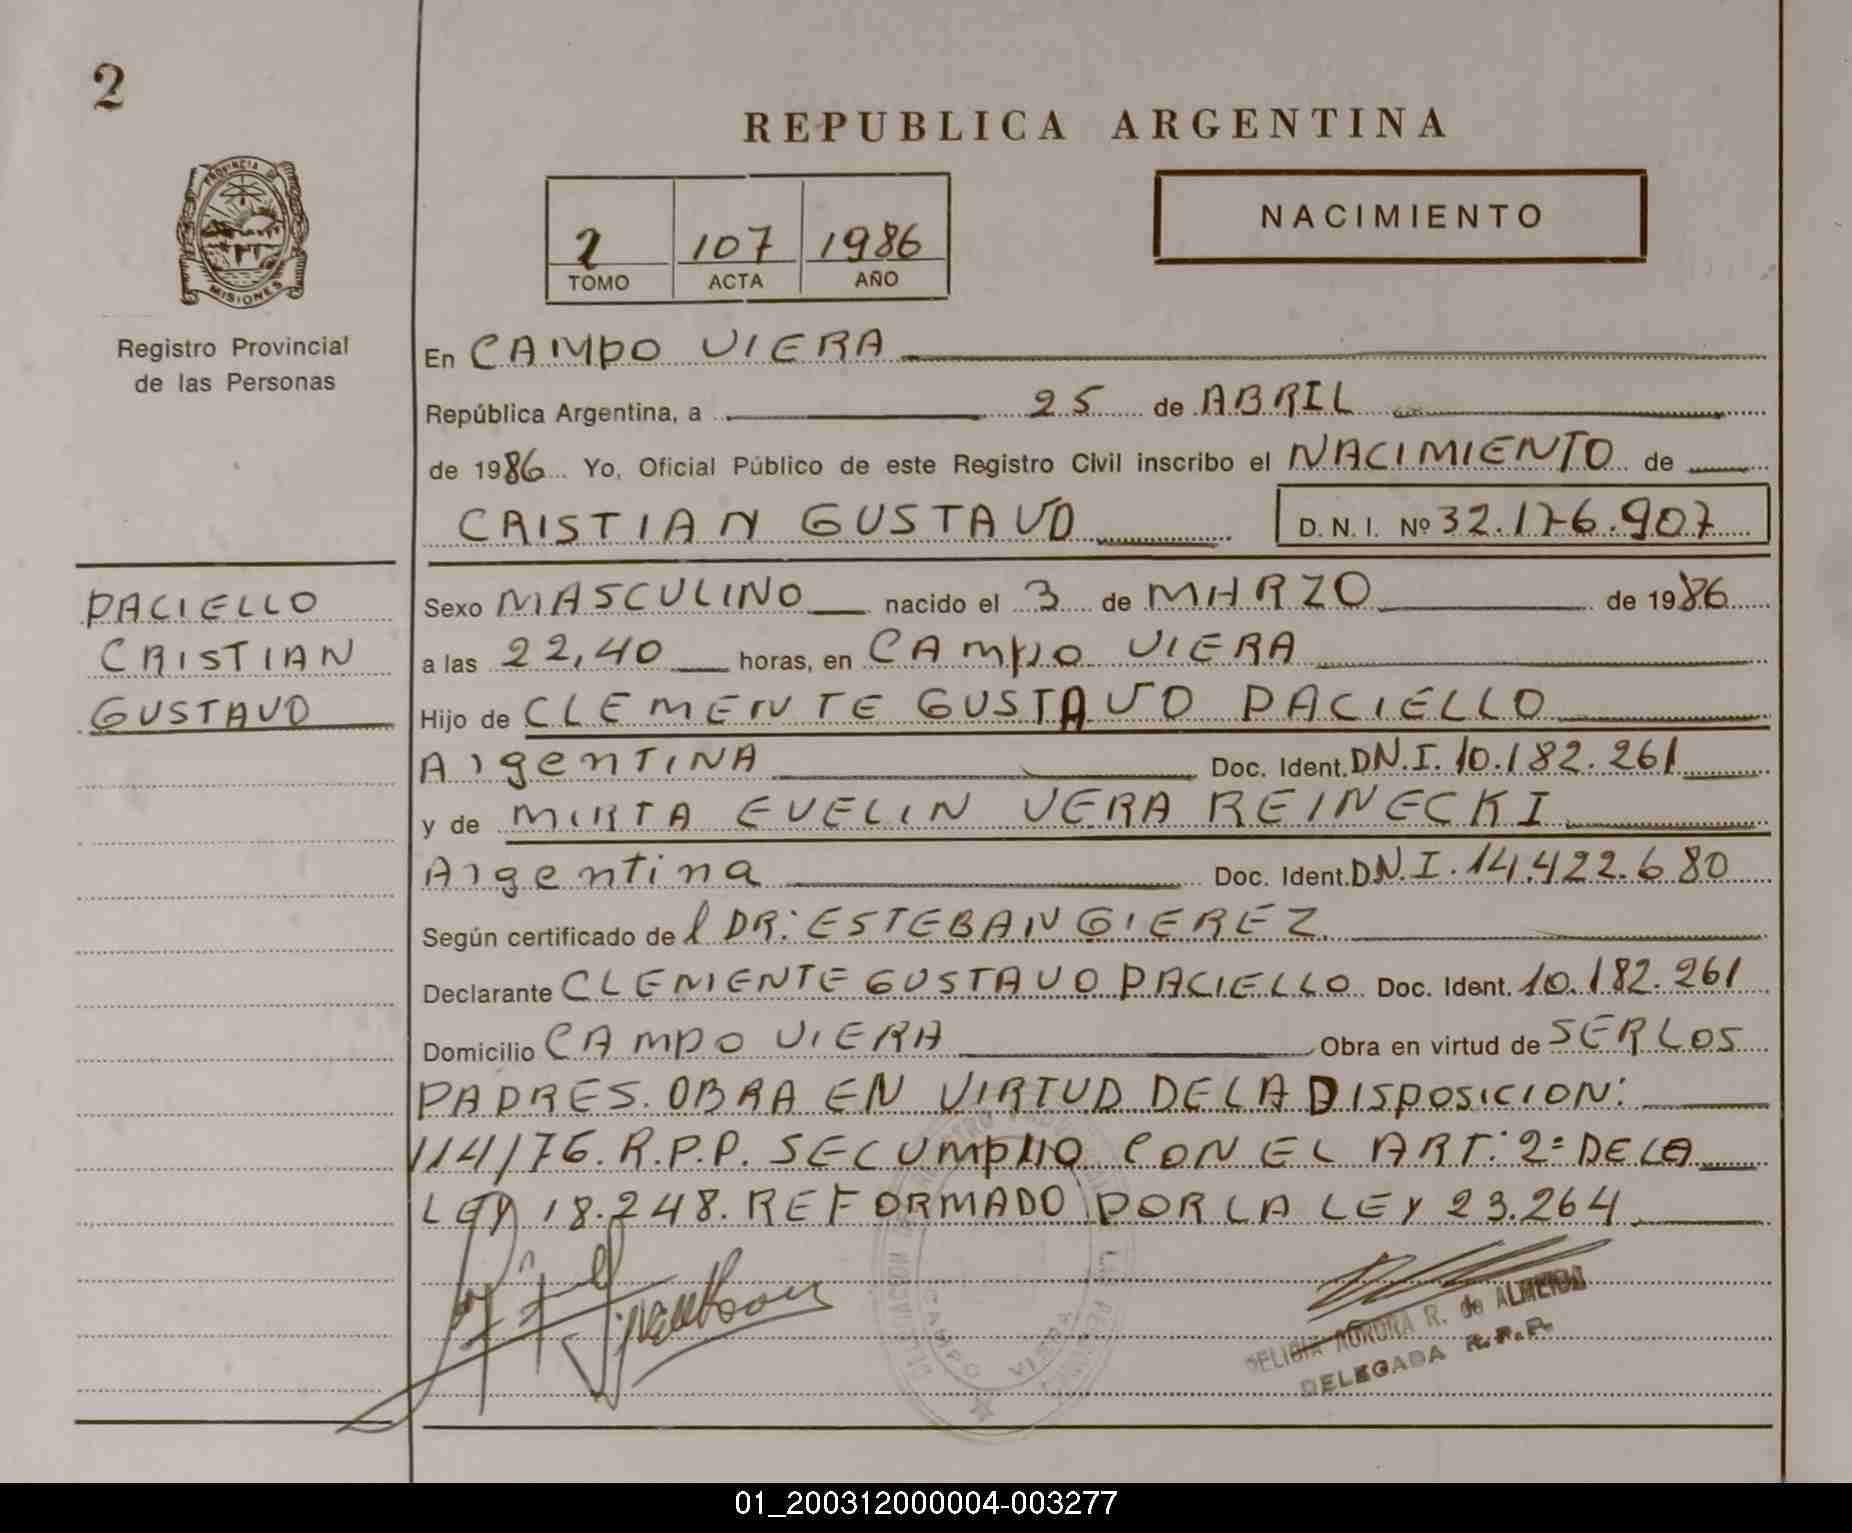 2
REPUBLICA ARGENTINA
PROVINCIA DE
MISIONES
Registro Provincial
de las Personas
2 107 1986
TOMO ACTA AÑO
NACIMIENTO
En CAMPO VIERA
República Argentina, a 25 de ABRIL
de 1986 Yo, Oficial Público de este Registro Civil inscribo el NACIMIENTO de
CRISTIAN GUSTAVO D. N. I. Nº 32.176.907
PACIELLO
CRISTIAN
GUSTAVO
Sexo MASCULINO nacido el 3 de MARZO de 1986
a las 22,40 horas, en CAMPO VIERA
Hijo de CLEMENTE GUSTAVO PACIELLO
ArgenTINA Doc. Ident. DN.I. 10.182.261
y de MIRTA EVELIN VERA REINECKI
Argentina Doc. Ident. DN.I. 14.422.680
Según certificado del DR: ESTEBAN GIEREZ
Declarante CLEMENTE GUSTAVO PACIELLO Doc. Ident. 10.182.261
Domicilio CAMPO VIERA Obra en virtud de SER LOS
PADRES. OBRA EN VIRTUD DE LA DISPOSICION:
114/76. R.P.P. SE CUMPLIO CON EL ART: 2º DE LA
LEY 18.248. REFORMADO POR LA LEY 23.264
CAMPO VIERA
DELICIA AURORA R. de ALMEIDA
DELEGADA R.P.P.
01_200312000004-003277